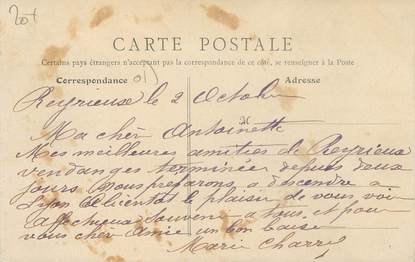 20f
CARTE POSTALE
Certains pays étrangers n'acceptant pas la correspondance de ce côté, se renseigner à la Poste
Correspondance
Adresse
01)
Reyrieux le 2 Octobre
Ma cher Antoinette
Mes meilleures amitiés de Reyrieux
vendanges terminées depuis deux
jours nous préparons, a descendre a
Lyon a bientot le plaisir de vous voir
affectueux souvenir a tous, et pour
vous cher Amie un bon baiser
Marie